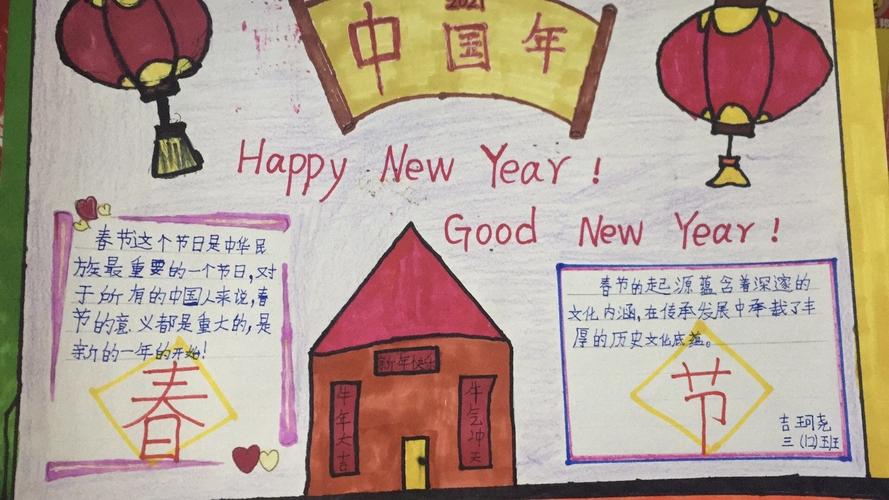 2021
中国年
Happy New Year!
Good New Year!
春节这个节日是中华民
族最重要的一个节日,对
于所有的中国人来说,春
节的意义都是重大的,是
新的一年的开始!
春
新年快乐
牛年大吉
牛气冲天
春节的起源蕴含着深邃的
文化内涵,在传承发展中承载了丰
厚的历史文化底蕴。
节
吉珂尧
三(12)班